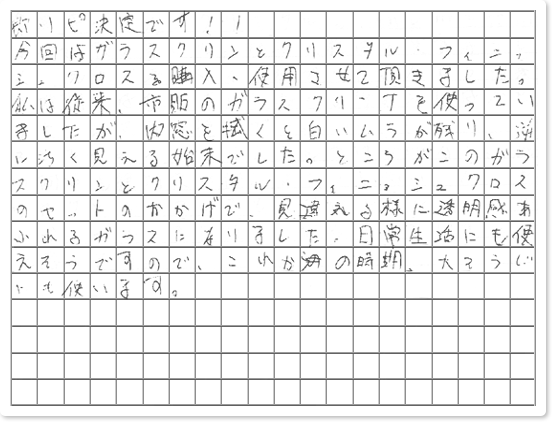 祝リピ決定です！！
今回はガラスクリンとクリスタル・フィニッ
シュクロスを購入、使用させて頂きました。
私は従来、市販のガラスクリーナーを使ってい
ましたが、内窓を拭くと白いムラが残り、逆
に汚く見える始末でした。ところがこのガラ
スクリンとクリスタル・フィニッシュクロス
のセットのおかげで、見違える様に透明感あ
ふれるガラスになりました。日常生活にも使
えそうですので、これからの時期、大そうじ
にも使います。